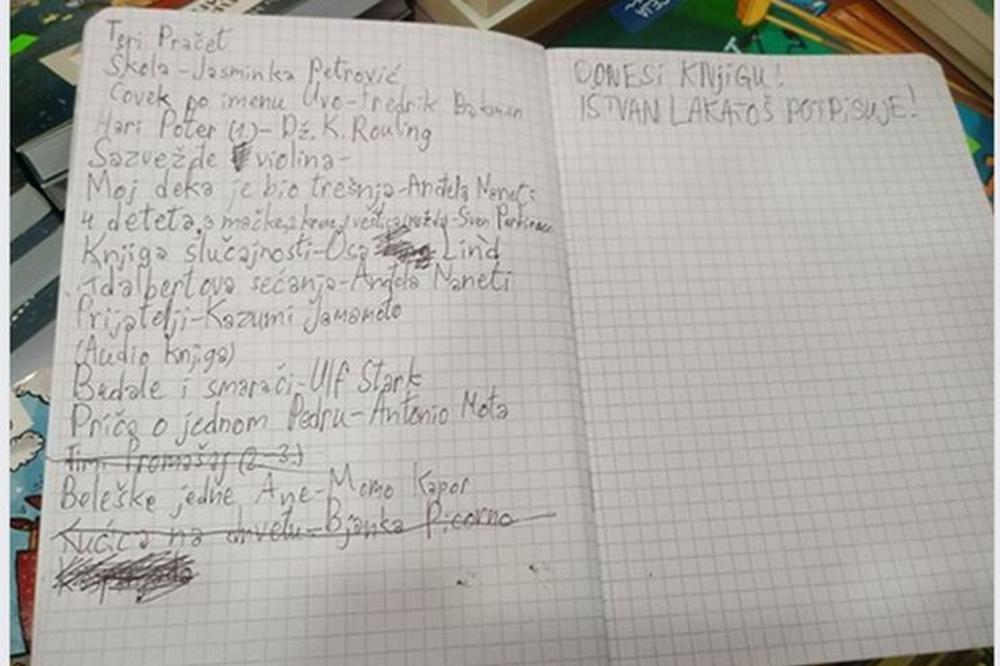 Teri Pračet
Škola-Jasminka Petrović
Čovek po imenu Uve-Fredrik Bakman
Hari Poter (1.)-Dž. K. Rouling
Sazvežđe violina-
Moj deka je bio trešnja-Anđela Naneti
4 deteta, 3 mačke, 2 krave, 1 veštica (možda)-Sven
Knjiga slučajnosti-Osa Lind
Adalbertova sećanja-Anđela Naneti
Prijatelji-Kazumi Jamamoto
(Audio knjiga)
Budale i smarači-Ulf Stark
Priča o jednom Pedru-Antonio Mota
Timi Promašaj (2.-3.)
Beleške jedne Ane-Momo Kapor
Kućica na drvetu-Bjanka Picorno
DONESI KNJIGU!
ISTVAN LAKATOŠ POTPISUJE!